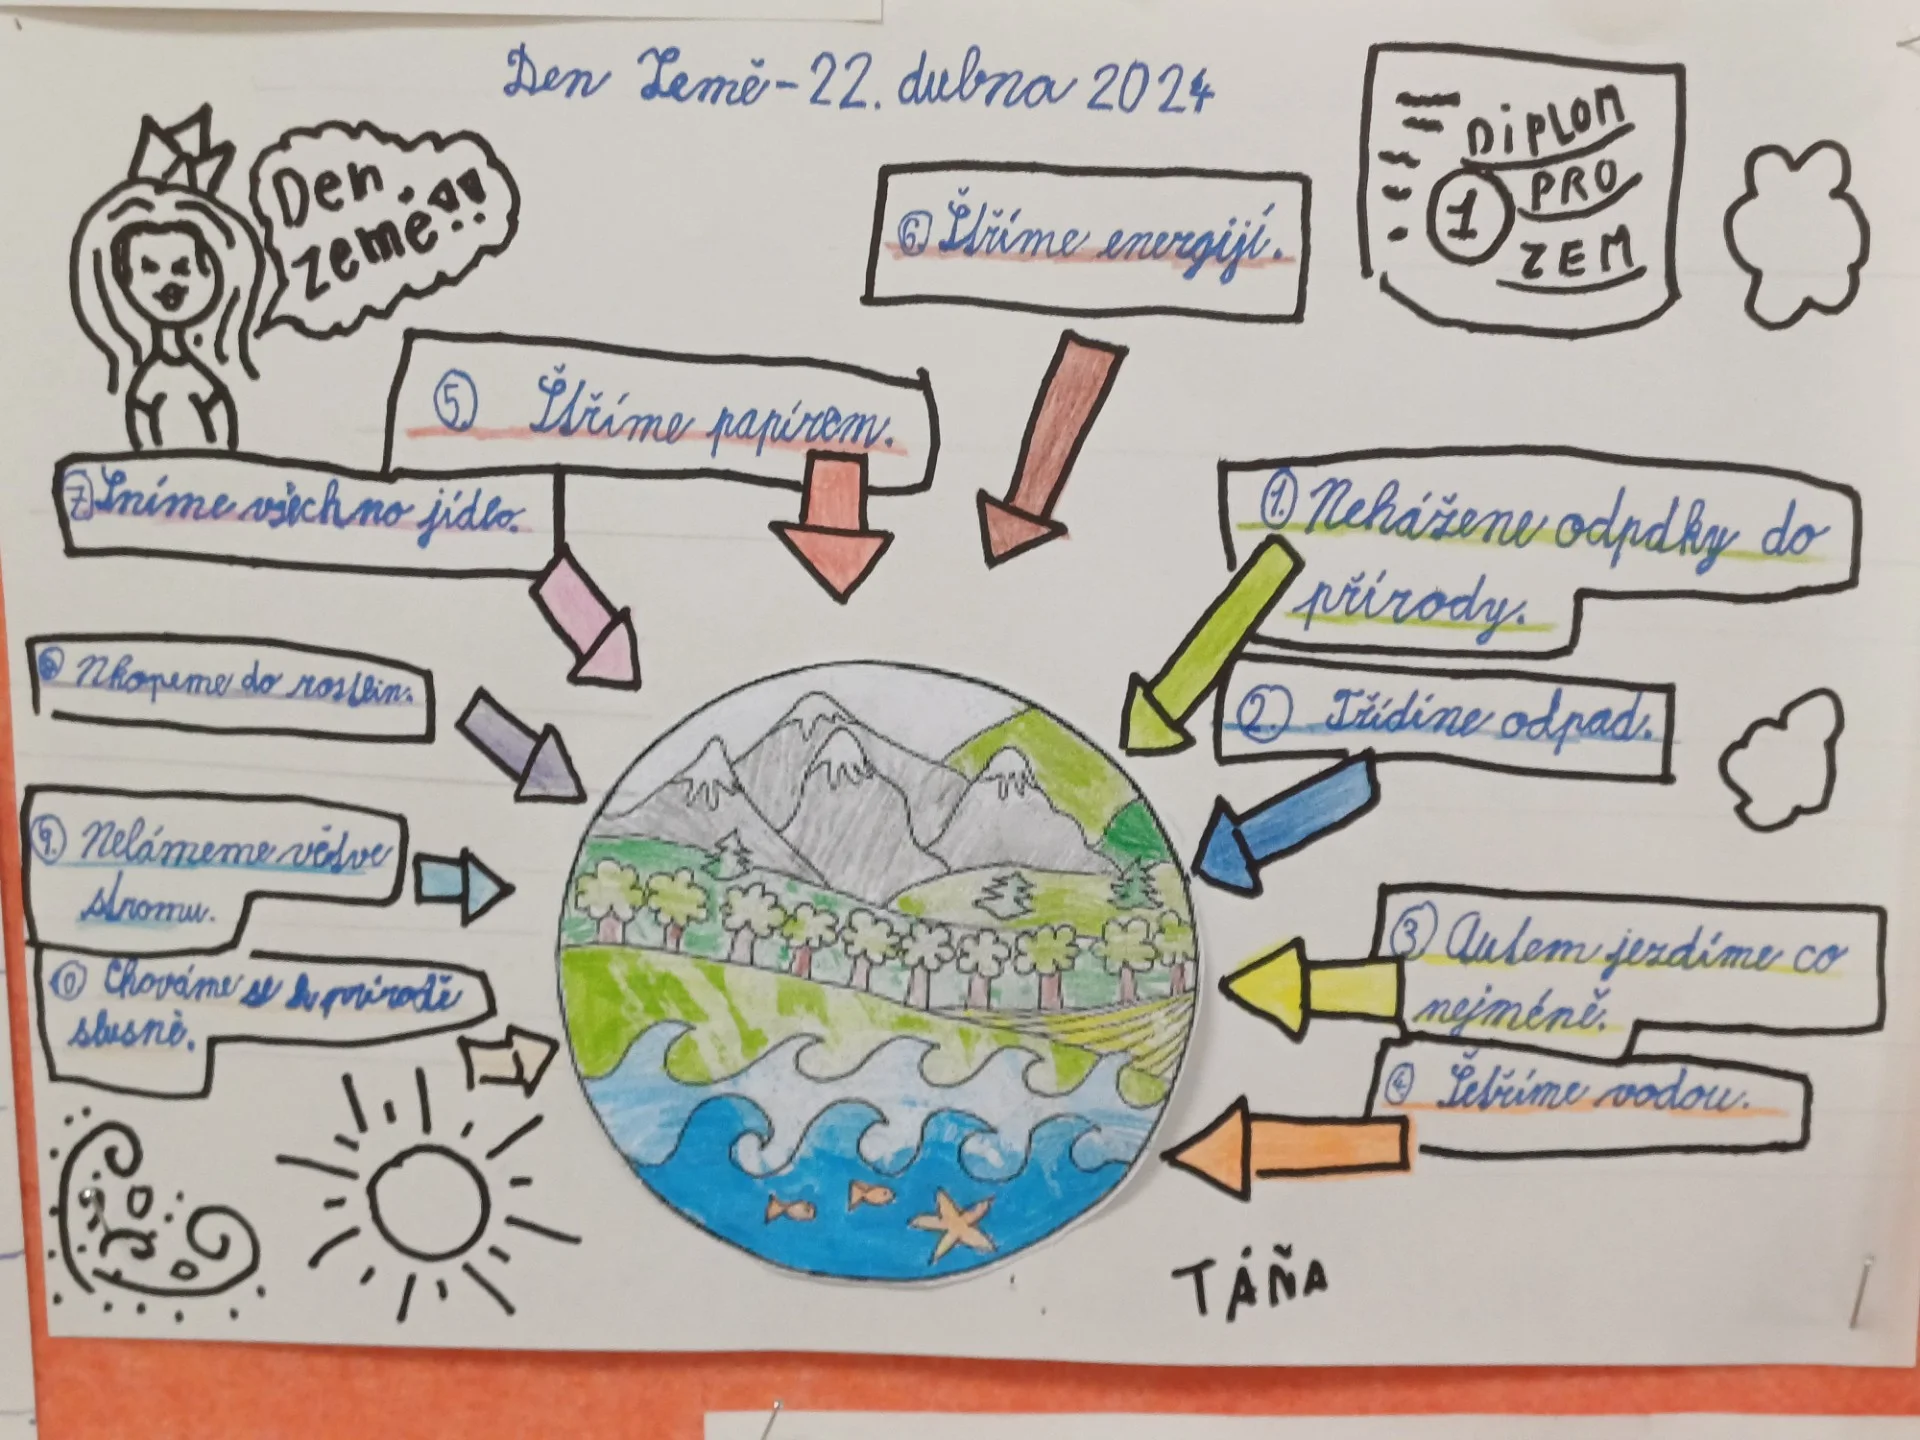 Den Země - 22. dubna 2024
Den
země!!
DiPLOM
PRO
1
ZEM
6 Štříme energijí.
5. Štříme papírem.
7 Sníme všechno jídlo.
1. Neházene odpdky do
přírody.
2. Třídíne odpad.
8 Nkopeme do rostlin.
9. Nelámeme větve
stromu.
3 Autem jezdíme co
nejméně.
0 Chováme se k přírodě
slusně.
4 Šetříme vodou.
TÁŇA